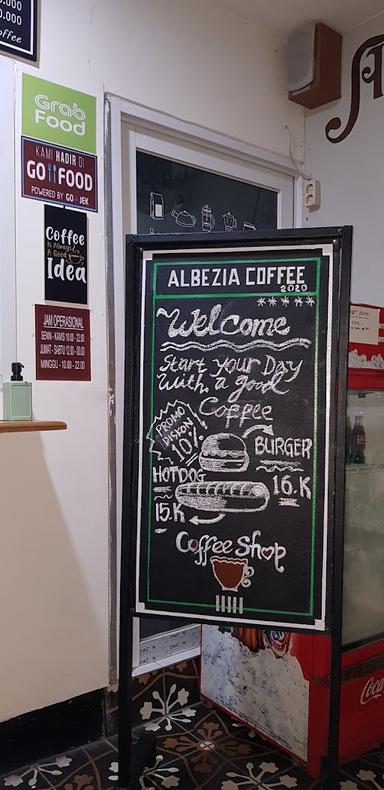 0.000
0.000
offee
Grab
Food
KAMI HADIR DI
GO FOOD
POWERED BY GOJEK
Coffee
Is Always
A Good
Idea
JAM OPERASIONAL
SENIN - KAMIS 10.00 - 22.00
JUMAT - SABTU 12.00 - 00.00
MINGGU : 10.00 - 22.00
ALBEZIA COFFEE
2020
Welcome
Start your Day
With a good
Coffee
PROMO
DISKON
10%
BURGER
16.K
HOTDOG
15.K
Coffee Shop
Coca